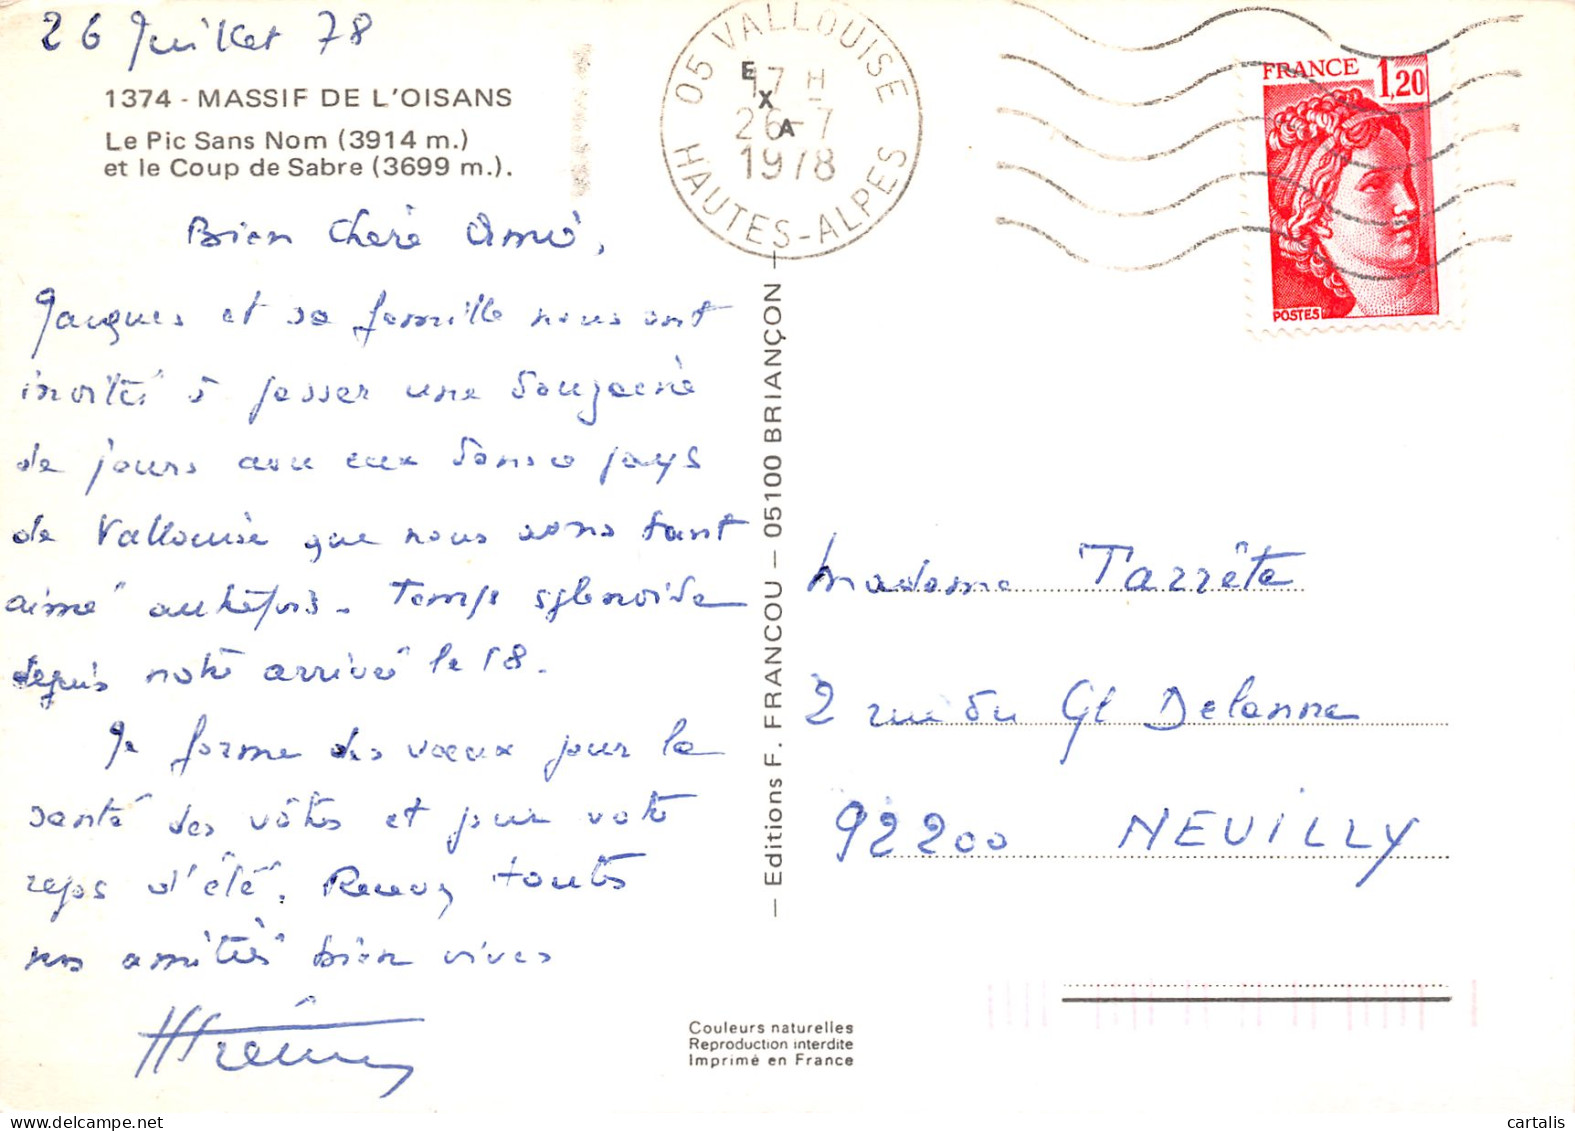 26 Juillet 78
1374 - MASSIF DE L'OISANS
Le Pic Sans Nom (3914 m.)
et le Coup de Sabre (3699 m.).
Bien Chère Amie,
Jacques et sa famille nous ont
invités à passer une douzaine
de jours avec eux dans ce pays
de Vallouise que nous avons tant
aimé autrefois. Temps splendide
depuis notre arrivée le 18.
Je forme des vœux pour la
santé des vôtres et pour votre
repos d'été. Recevez toutes
nos amitiés bien vives
05 VALLOUISE
17 H
26-7
1978
HAUTES-ALPES
EXA
FRANCE 1,20
POSTES
— Editions F. FRANCOU — 05100 BRIANÇON —
Madame Tarrête
2 rue du Gl Delanne
92200 NEUILLY
Couleurs naturelles
Reproduction interdite
Imprimé en France
cartalis
delcampe.net